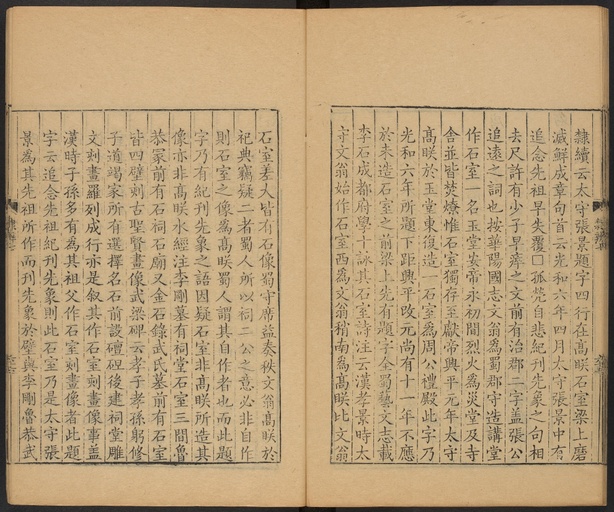 隸續云太守張景題字四行在高眹石室梁上磨
滅鮮成章句首云光和六年四月太守張景中有
追念先祖早失覆□孤煢自悲紀刊先象之句相
去尺許有少子早瘁之文前有治郡二字盖張公
追遠之詞也按華陽國志文翁為蜀郡守造講堂
作石室一名玉堂安帝永初間烈火為災堂及寺
舍並皆焚燎惟石室獨存至獻帝興平元年太守
高眹於玉堂東復造一石室為周公禮殿此字乃
光和六年所題下距興平改元尚有十一年不應
於未造石室之前梁上先有題字全蜀藝文志載
李石成都府學十詠其石室詩注云漢孝景時太
守文翁始作石室西為文翁稍南為高眹比文翁
石室差大皆有石像蜀守席益奏秩文翁高眹於
祀典竊疑二者蜀人所以祠二公之意必非自作
則石室之像為高眹蜀人謂其自作者也而此題
字乃有紀刊先象之語因疑石室非高眹所造其
像亦非高眹水經注李剛墓有祠堂石室三間魯
恭冢前有石祠石廟又金石錄武氏墓前有石室
皆四壁刻古聖賢畫像武梁碑云孝子孝孫躬修
子道竭家所有選擇名石前設磹硾後建祠堂雕
文刻畫羅列成行亦是叙其作石室刻畫像事盖
漢時子孫多有為其祖父作石室刻畫像者此題
字云追念先祖紀刊先象則此石室乃是太守張
景為其先祖所作而刊先象於壁與李剛魯恭武